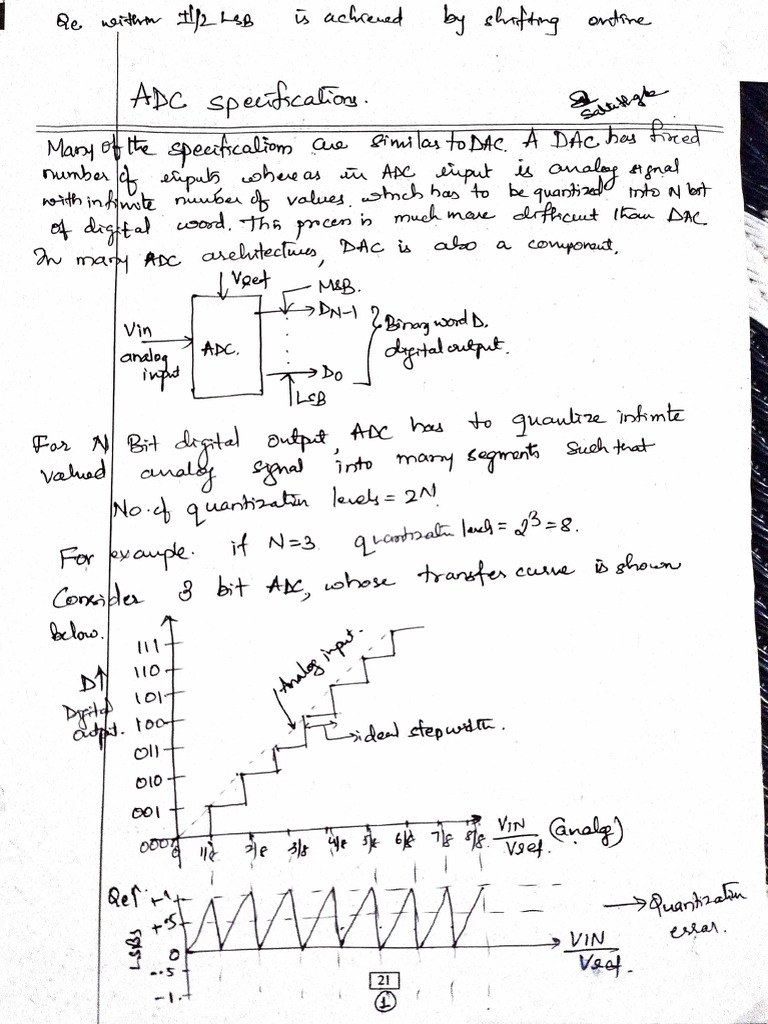 Qe within ±1/2 LSB is achieved by shifting entire
ADC specifications.
Many of the specifications are similar to DAC. A DAC has fixed
number of inputs whereas in ADC input is analog signal
with infinite number of values. which has to be quantized into N bit
of digital word. This process is much more difficult than DAC
In many ADC architectures, DAC is also a component.
Vref
MSB.
DN-1
Vin
analog
input
ADC.
Binary word D,
digital output.
D0
LSB
For N Bit digital output, ADC has to quantize infinite
valued analog signal into many segments such that
No. of quantization levels = 2N
For example. if N=3 quantization levels = 2³ = 8.
Consider 3 bit ADC, whose transfer curve is shown
below.
111
110
101
100
011
010
001
000
D↑
Digital
output.
Analog input.
ideal step width.
0 1/8 2/8 3/8 4/8 5/8 6/8 7/8 8/8
VIN/Vref. (analog)
Qe↑
LSBs
+1
+.5
0
-.5
-1.
Quantization
error.
VIN/Vref.
21
1